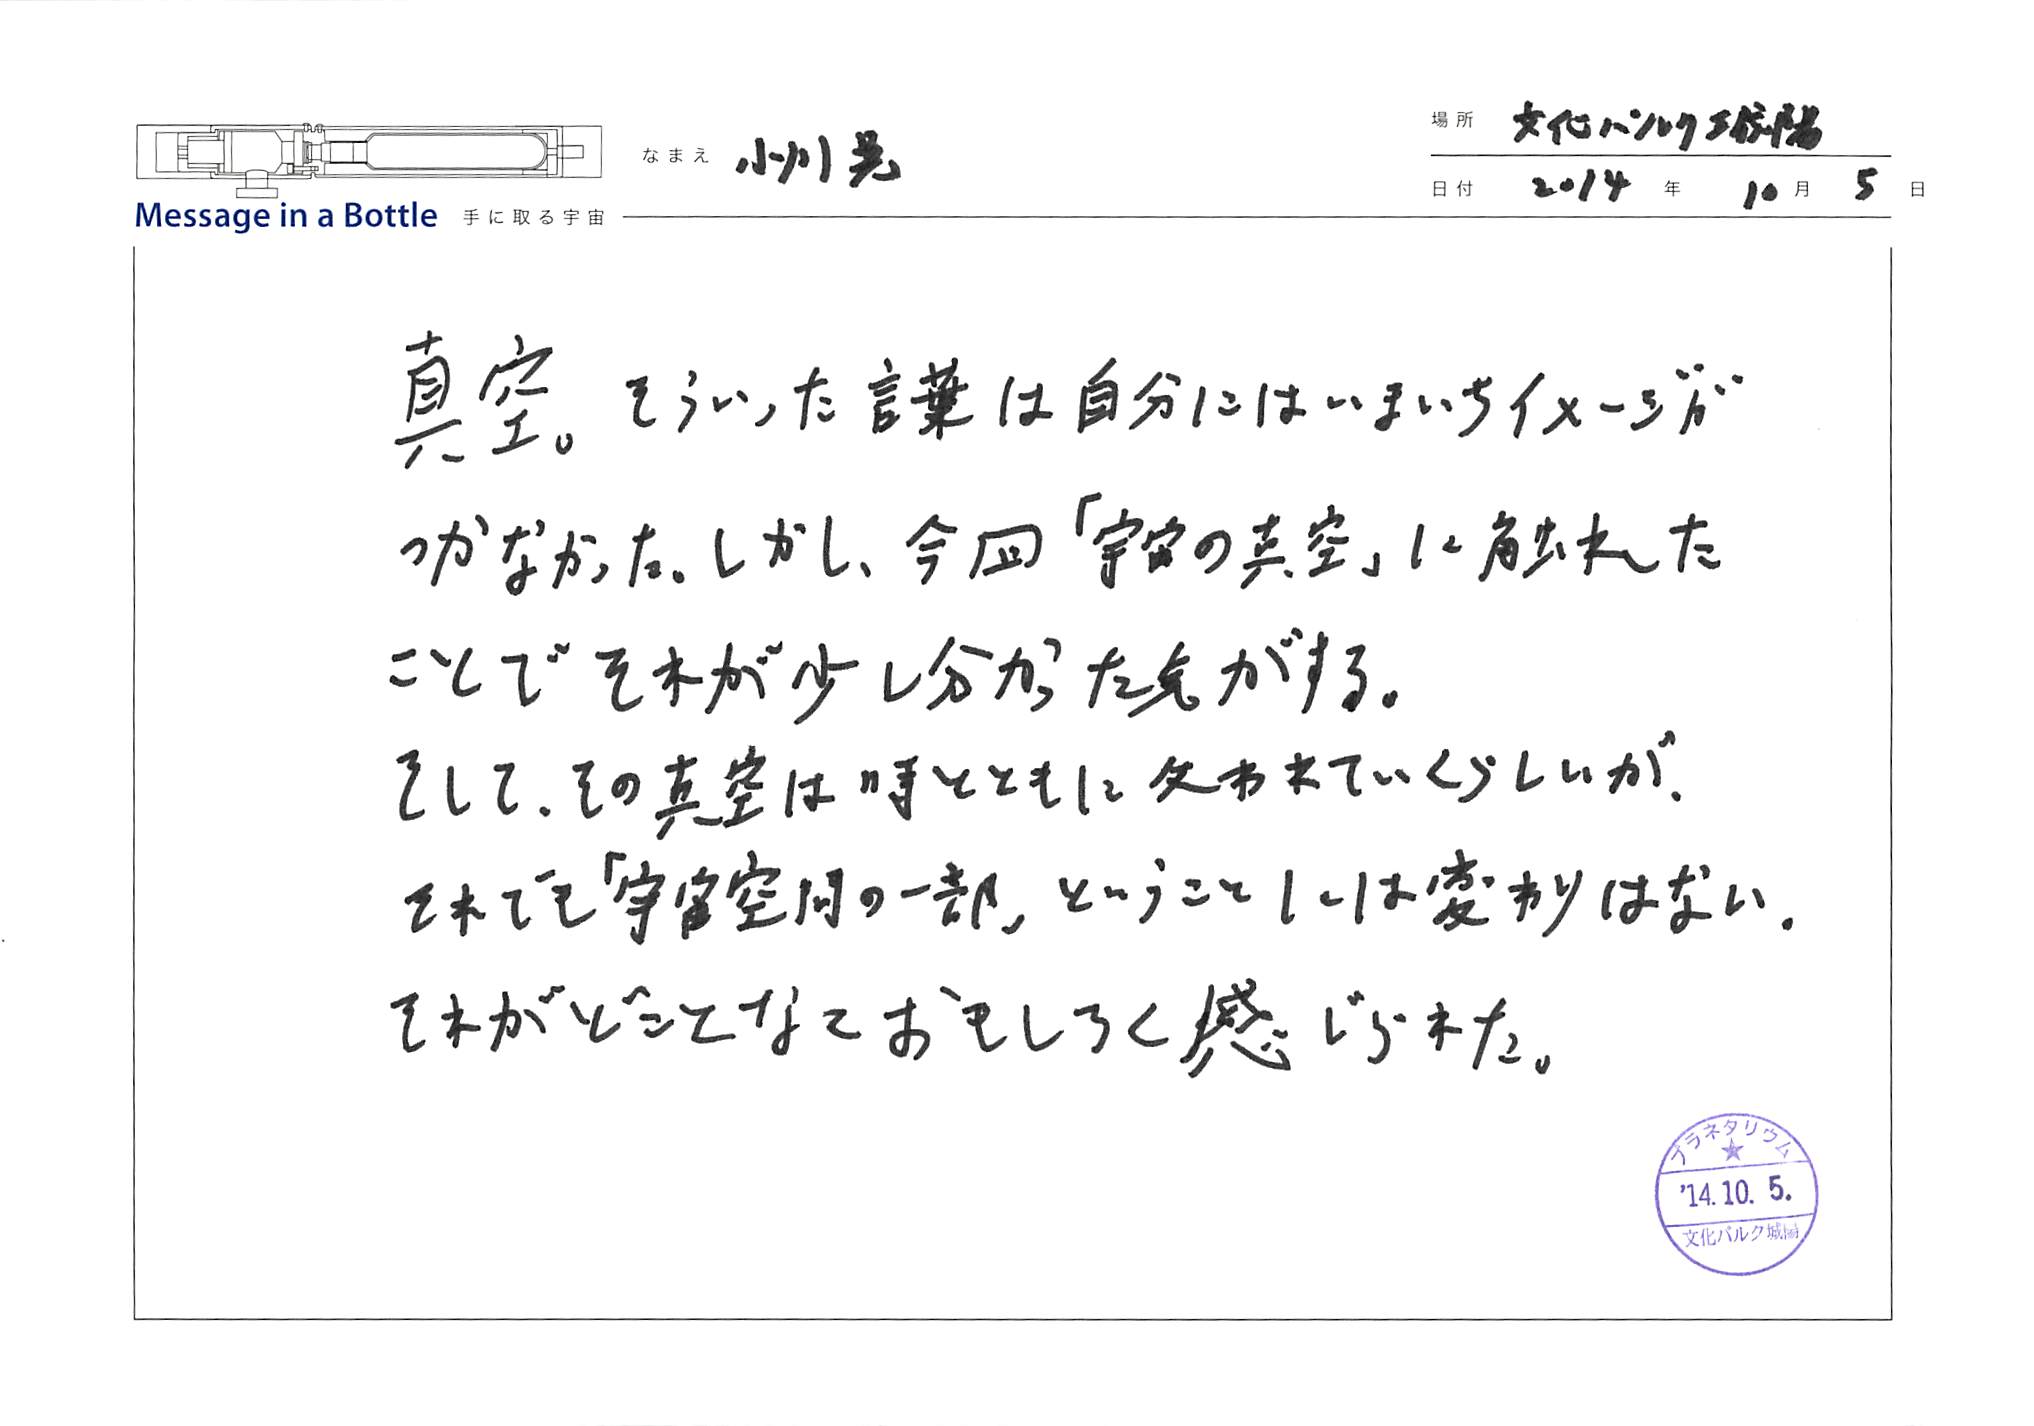 場所 文化パルク城陽
なまえ 小川晃
日付 2014年 10月 5日
Message in a Bottle 手に取る宇宙
真空。そういった言葉は自分にはいまいちイメージが
つかなかった。しかし、今回「宇宙の真空」に触れた
ことでそれが少し分かった気がする。
そして、その真空は時とともに失われていくらしいが、
それでも「宇宙空間の一部」ということには変わりはない。
それがどことなくおもしろく感じられた。
プラネタリウム
'14.10.5.
文化パルク城陽